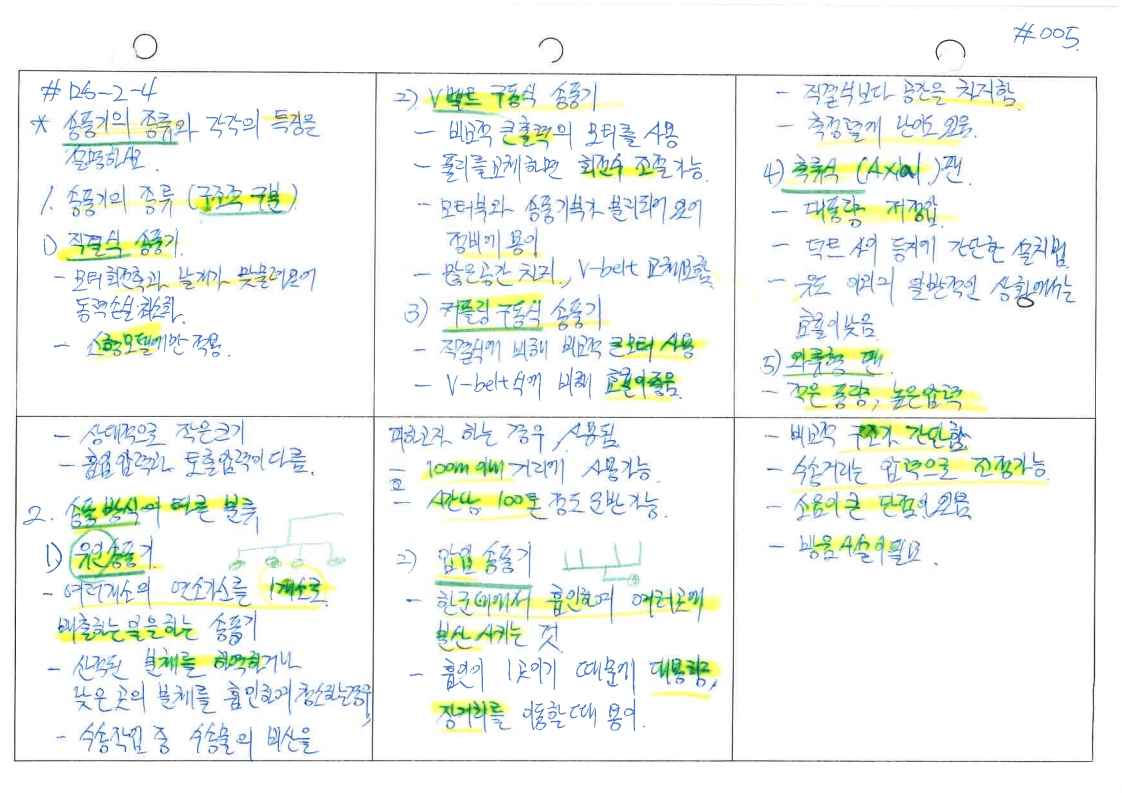 #005
# 126-2-4
* 송풍기의 종류와 각각의 특징을
설명하시오
1. 송풍기의 종류 (구조적 구분)
1) 직결식 송풍기.
- 모터회전축과 날개가 맞물려있어
동력손실최소화.
- 소형모델에만 적용.
2) V벨트 구동식 송풍기
- 비교적 큰출력의 모터를 사용
- 풀리를교체하면 회전수 조절가능.
- 모터부와 송풍기부가 분리되어 있어
정비에 용이
- 많은공간 차지, V-belt 교체요함.
3) 커플링 구동식 송풍기
- 직결식에 비해 비교적 큰모터 사용
- V-belt식에 비해 효율이좋음.
- 직결식보다 공간을 차지함.
- 측정및에 난이도 있음.
4) 축류식 (Axial)팬.
- 대풍량 저정압
- 덕트 사이 등지에 간단한 설치법.
- 유도 이외의 일반적인 상황에서는
효율이낮음
5) 와류형 팬.
- 적은 풍량, 높은압력
- 상대적으로 작은크기
- 흡입압력과 토출압력이 다름.
2. 송출 방식에 따른 분류
1) 유인송풍기.
- 여러개소의 연소가스를 1개소로
배출하는일을하는 송풍기
- 산적된 물체를 하역하거나
낮은곳의 물체를 흡인하여 청소하는경우,
- 수송작업 중 수송물의 비산을
피하고자 하는 경우 사용됨
- 100m 이내 거리에 사용가능.
- 시간당 100톤 정도 운반가능.
2) 압입 송풍기
- 한군데에서 흡인하여 여러곳에
분산 시키는 것.
- 흡입이 1곳이기 때문에 대용량,
장거리를 이동할때 용이.
- 비교적 구조가 간단함.
- 수송거리는 압력으로 조절가능.
- 소음이큰 단점이있음
- 방음시설이필요.